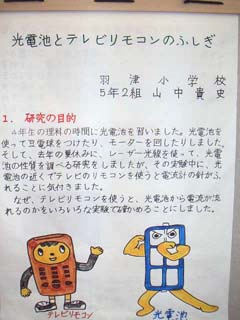 光電池とテレビリモコンのふしぎ
羽津小学校
5年2組 山中貴史
1. 研究の目的
4年生の理科の時間に光電池を習いました。光電池を
使って豆電球をつけたり、モーターを回したりしました。
そして、去年の夏休みに、レーザー光線を使って、光電
池の性質を調べる研究をしましたが、その実験中に、光
電池の近くでテレビのリモコンを使うと電流計の針がふ
れることに気付きました。
なぜ、テレビリモコンを使うと、光電池から電流が流
れるのかをいろいろな実験でたしかめることにしました。
テレビリモコン
光電池